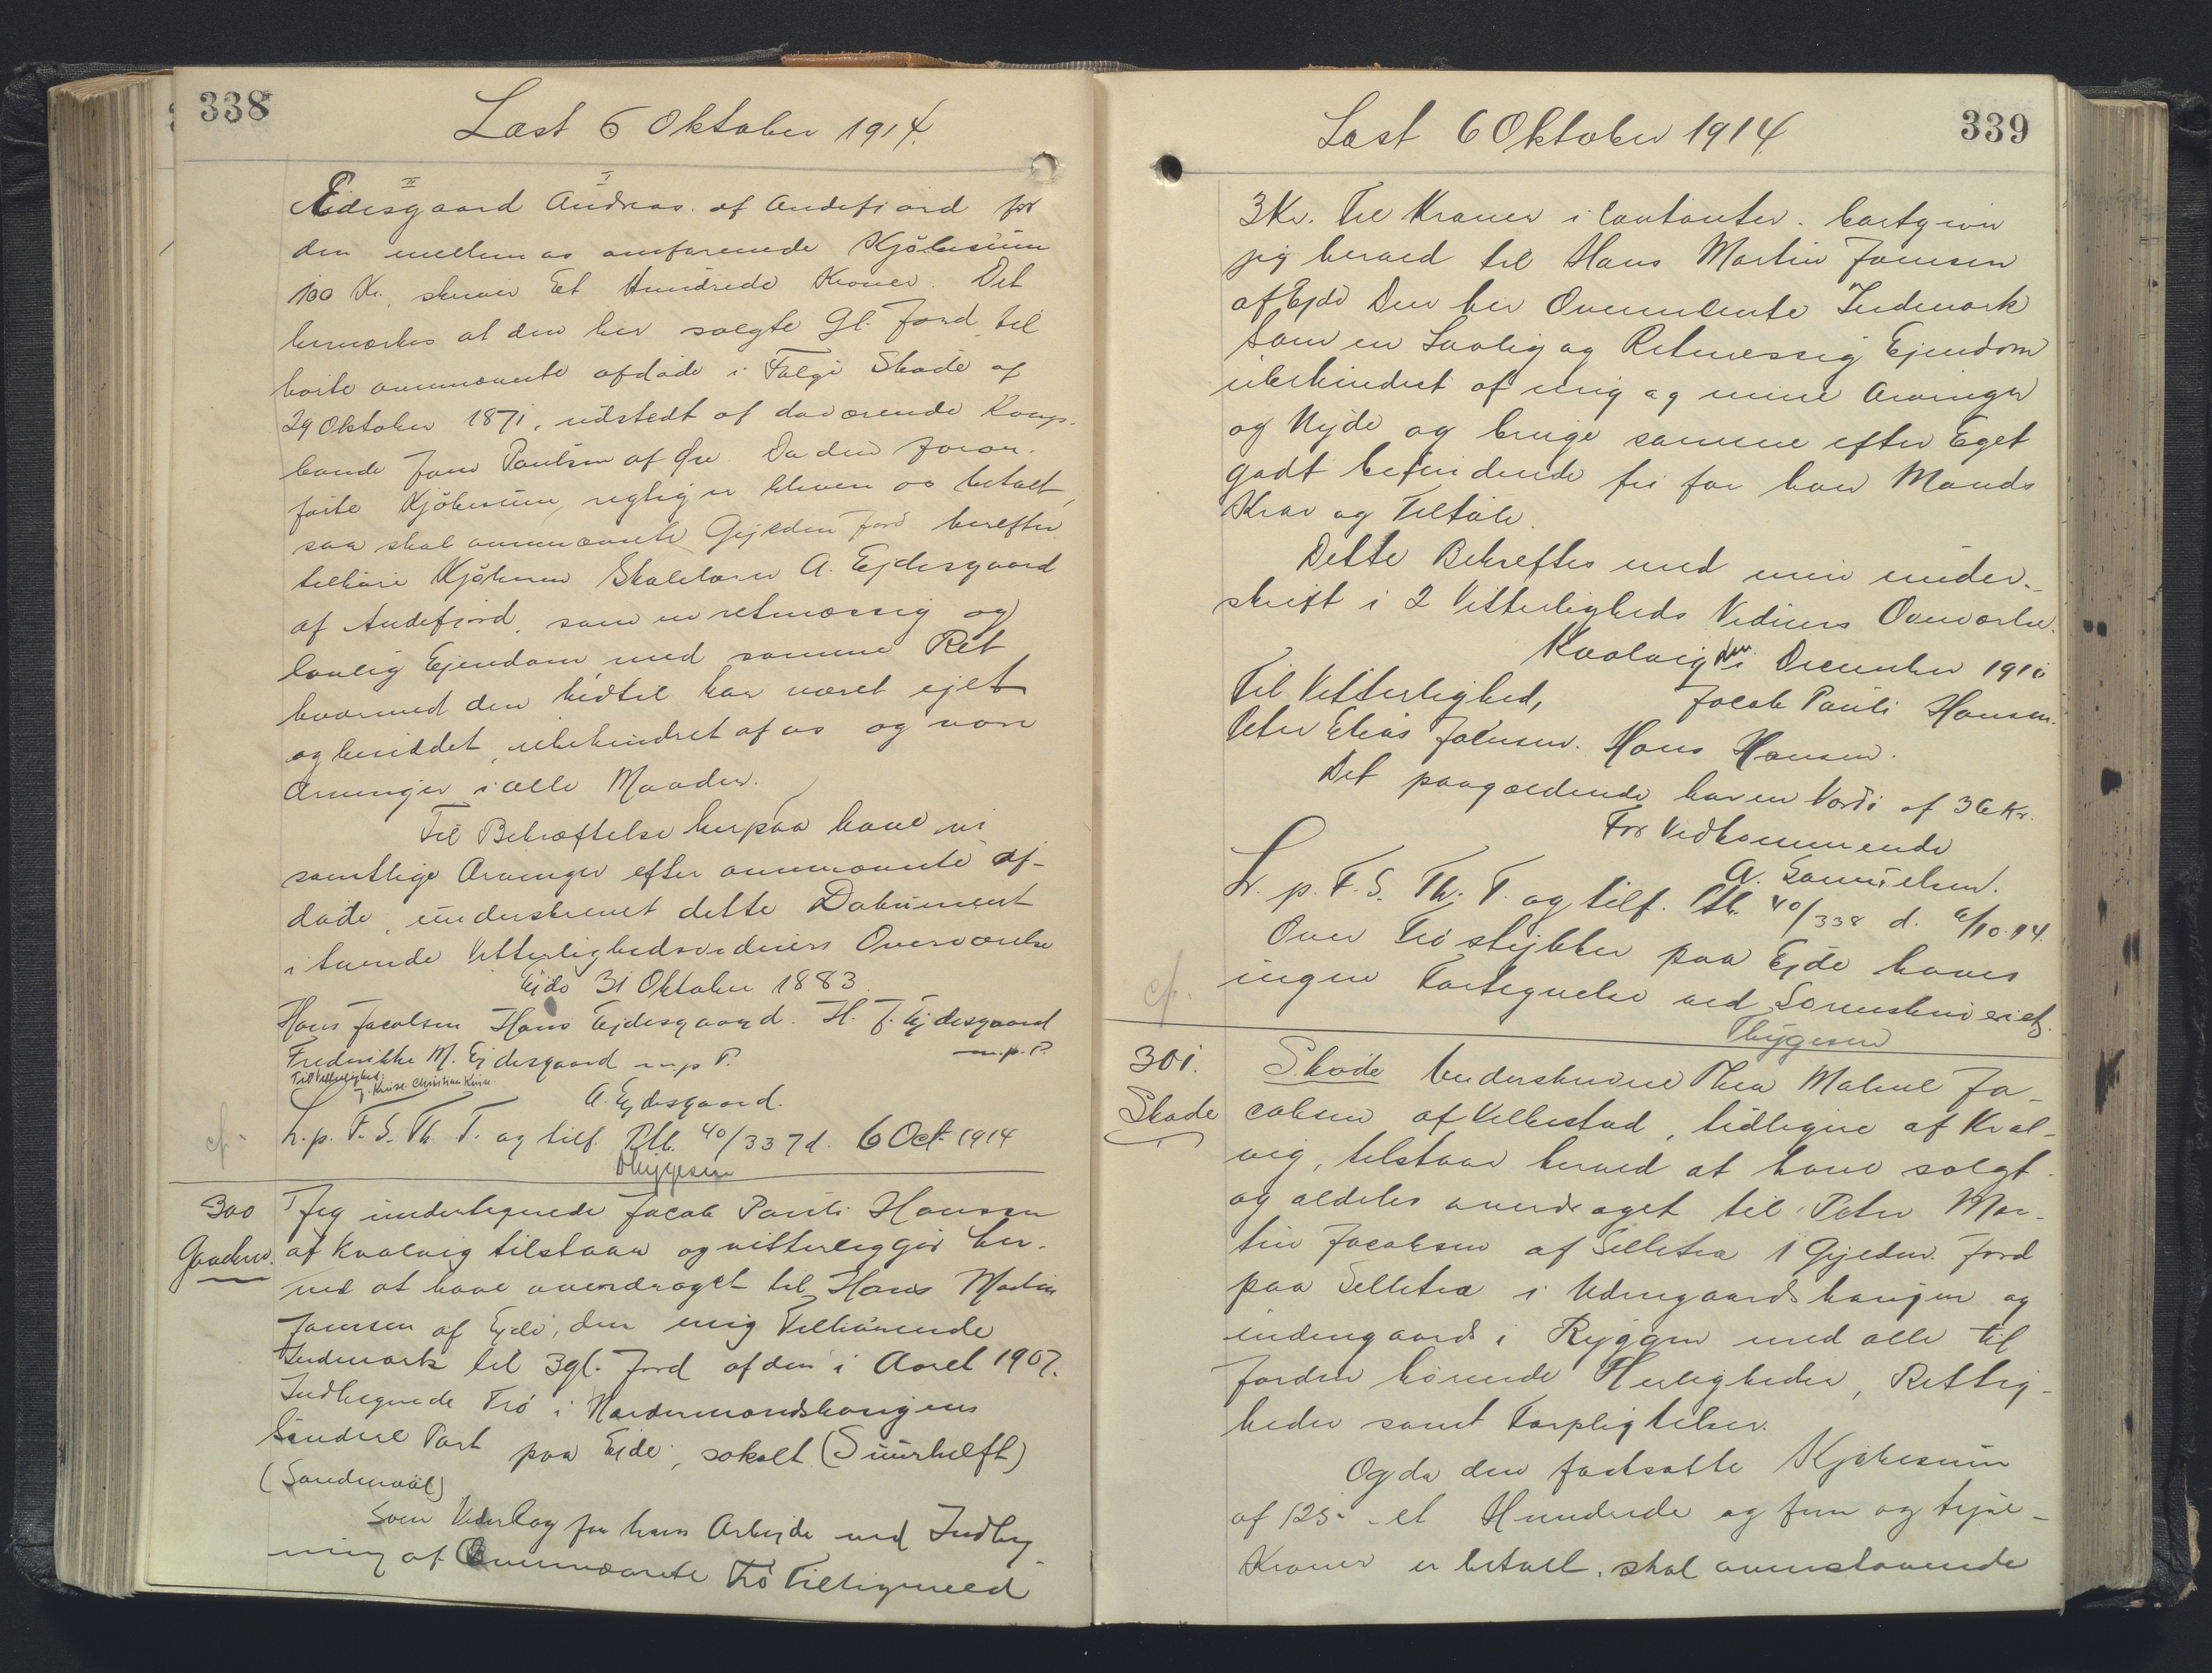 338
Læst 6 Oktober 1914.
II I
Ejdesgaard Andreas. af Andefjord for
den mellem os omforenede Kjøbesum
100 Kr., skriver Et Hundrede Kroner. Det
bemærkes at den her solgte Gl. Jord til
hørte ovennævnte afdøde i Følge Skøde af
29 Oktober 1871, udstedt af daværende Kongs-
bonde Joen Poulsen af Øre. Da den foran-
førte Kjøbesum, rigtig er bleven os betalt,
saa skal ovennævnte Gjylden Jord herefter
tilhøre Kjøberen Skolelærer A. Ejdesgaard
af Andefjord, som en retmæssig og
lovlig Ejendom med samme Ret
hvormed den hidtil har været ejet
og besiddet, ubehindret af os og vore
Arvinger i alle Maader.
Til Bekræftelse herpaa have vi
samtlige Arvinger efter ovennævnte af-
døde, underskrevet dette Dokument
i tvende Vitterlighedsvidners Overværelse
Ejde 31 Oktober 1883.
Hans Jacobsen Hans Ejdesgaard. H. J. Ejdesgaard
m.p.P.
Frederikke M. Ejdesgaard m.p P.
Til Vitterlighed:
J. Kruse. Christian Kruse.
A. Ejdesgaard.
cf. L.p. F. S. Th. T. og tilf. Ptb. 40/337 d. 6 Oct 1914
Thygesen
300 Jeg undertegnede Jacob Pauli Hansen
Gavebrev. af Kvalvig tilstaar og vitterliggjør her-
ved at have overdraget til Hans Martin
Joensen af Ejde, den mig Tilhørende
Indmark til 3 gl. Jord af den i Aaret 1907.
Indhegnede Trø i Nordermandshavgens
Søndere Part paa Ejde, sokalt (Suurhelft)
(Sandemøil)
Som Vederlag for hans Arbejde ved Indheg-
ning af Ovennævnte Trø Tilligemed
Læst 6 Oktober 1914
339
3 Kr. Tre Kroner i Contanter. bortgiver
jeg herved til Hans Martin Joensen
af Ejde Den her Ovenmeldte Indemark
Som en Lovlig og Retmessig Ejendom
ubehindret af mig og mine Arvinger
og Nyde og bruge samme efter Eget
godt befindende fri for hver Mands
Krav og Tiltale.
Dette Bekreftes med min under-
skrift i 2 Vitterligheds Vidners Overværelse.
Kvalvig den i December 1910
Til Vitterlighed, Jacob Pauli Hansen.
Peter Elias Johnsen. Hans Hansen.
Det paagældende har en Værdi af 36 Kr.
For Vedkommende
A. Samuelsen.
L. p. F. S. Th. T. og tilf. Ptb. 40/338 d. 6/10.14.
Over Trøstykker paa Ejde haves
cf. ingen Fortegnelse ved Sorenskriveriet.
Thygesen
301. Skøde Underskrevne Thea Malene Ja-
Skøde cobsen af Velbestad, tidligere af Kval-
vig, tilstaar herved at have solgt
og aldeles overdraget til Peter Mar-
tin Jacobsen af Selletræ 1 Gyldn. Jord
paa Selletræ i Udengaardshaugen og
indengaards i Ryggen med alle til
Jorden hørende Herligheder, Rettig-
heder samt Forpligtelser.
Og da den fastsatte Kjøbesum
af 125 - et Hundrede og fem og tyve -
Kroner er betalt, skal ovenstaaende